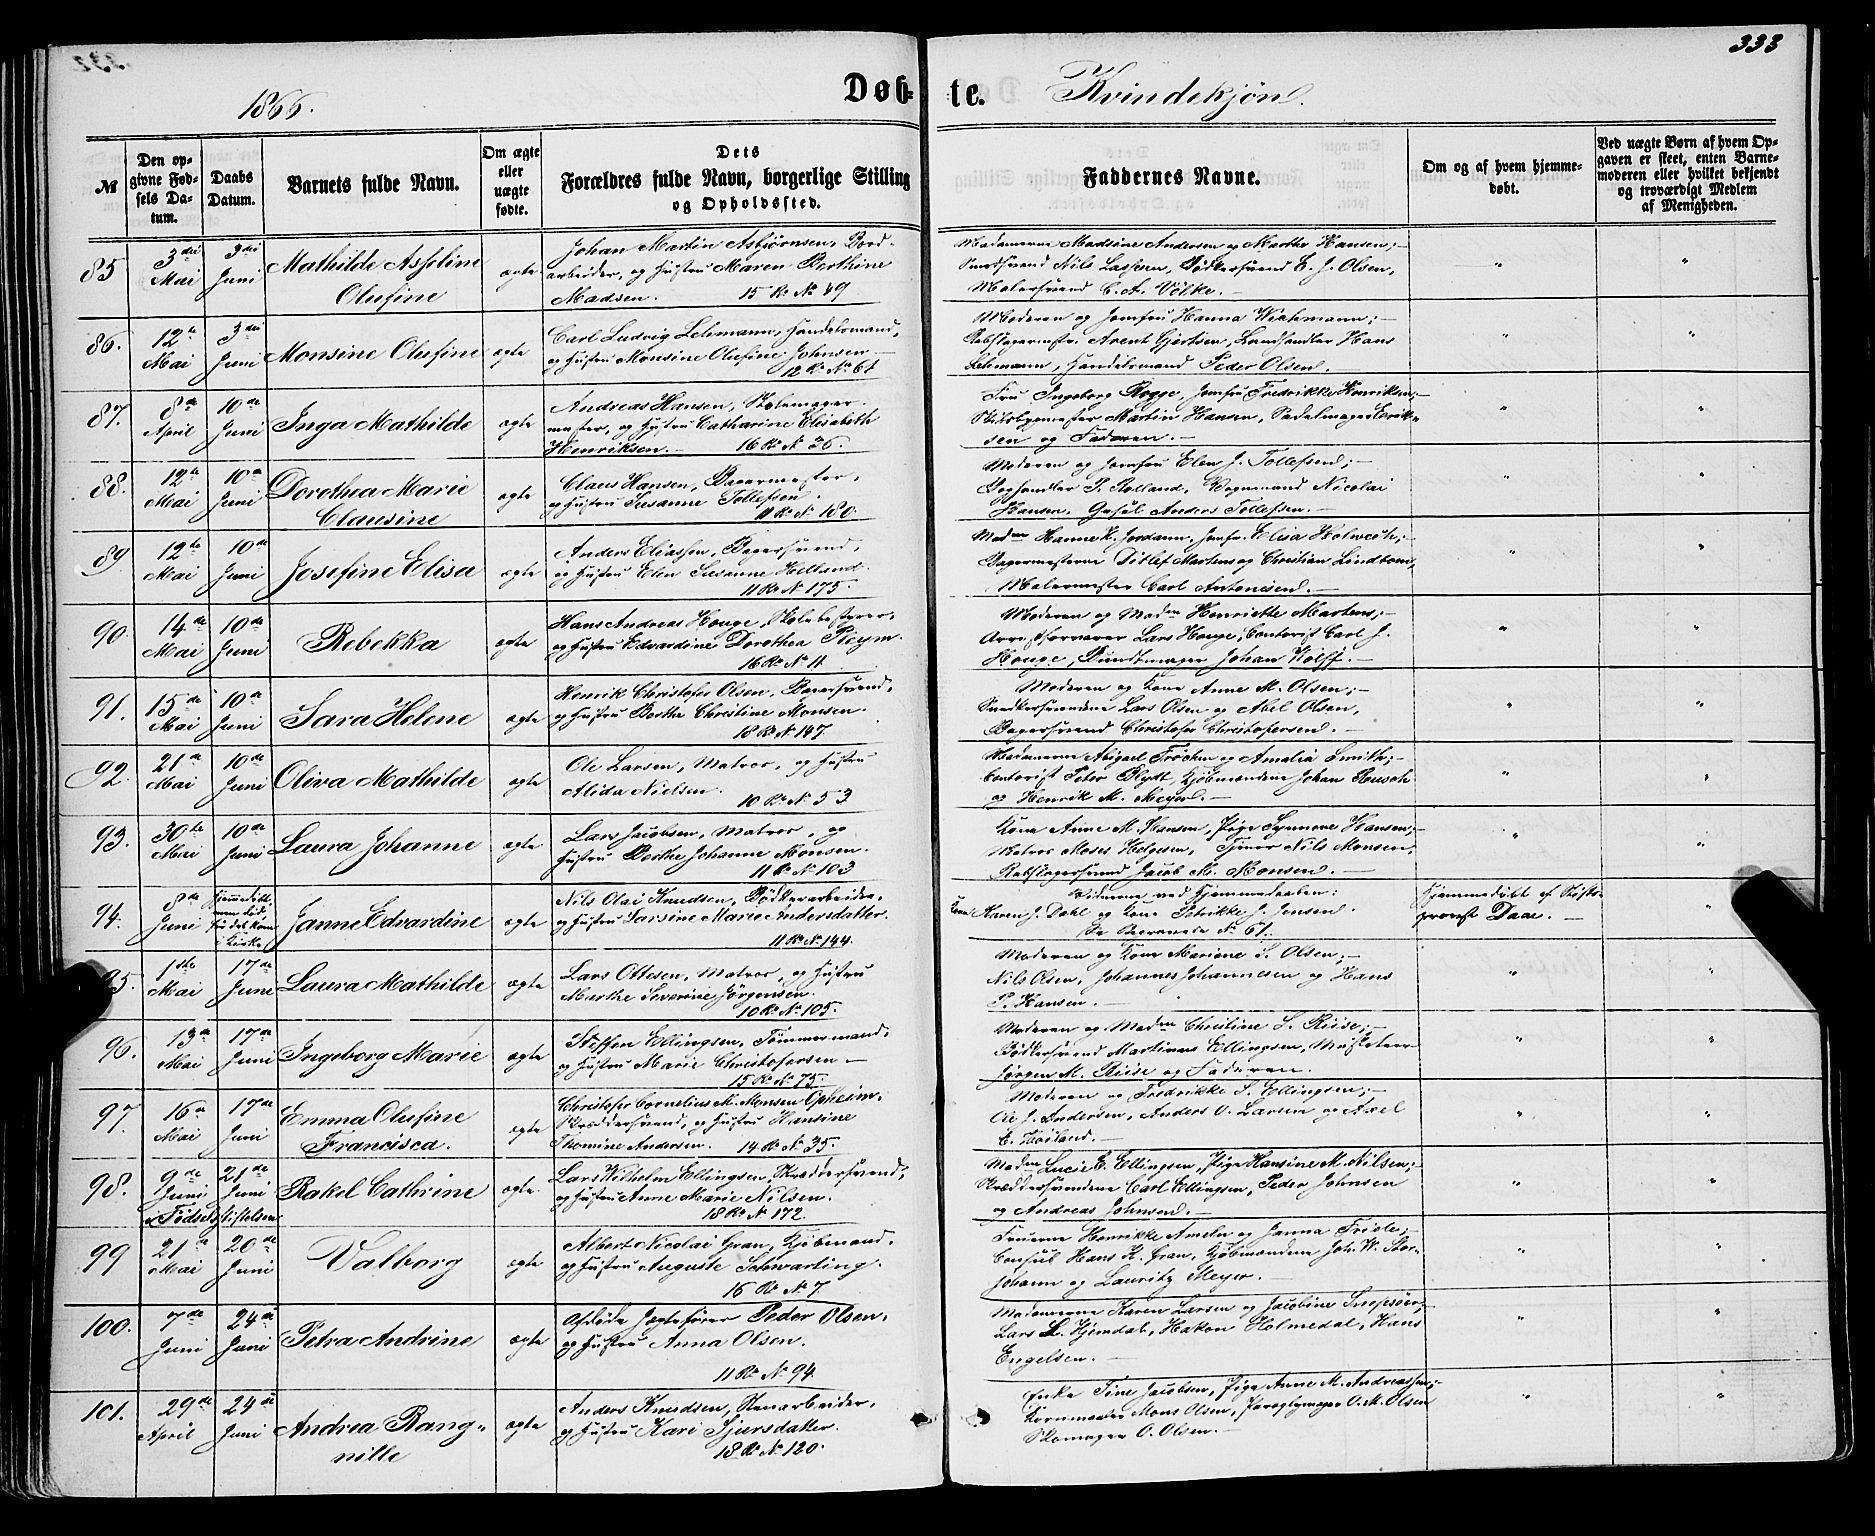 333
1866.
Døb-te. Kvindekjøn.
№
Den opgivne Fødsels Datum.
Daabs Datum.
Barnets fulde Navn.
Om ægte eller uægte fødte.
Dets Forældres fulde Navn, borgerlige Stilling og Opholdssted.
Faddernes Navne.
Om og af hvem hjemmedøbt.
Ved uægte Børn af hvem Opgaven er skeet, enten Barnemoderen eller hvilket bekjendt og troværdigt Medlem af Menigheden.
85 3die Mai 3die Juni Mathilde Asseline Olufine ægte
Johan Martin Asbjørnsen, Bord-
arbeider, og Hustru Maren Berthine
Madsen. 15 R. № 49
Madamerne Madsine Andersen og Marthe Hansen;
Smedsvend Nils Lassesen, Bødkersvend E. J. Olsen,
Malersvend C. A. Völke.
86. 12te Mai 3die Juni Monsine Olufine ægte
Carl Ludvig Lehmann, Handelsmand,
og Hustru Monsine Olufine Johnsen
12 R. № 61
Moderen og Jomfru Hanna Wichmann;
Rebslagermstr. Arent Gjertsen, Landhandler Hans
Lehmann, Handelsmand Peder Olsen.
87. 8de April 10de Juni Inga Mathilde ægte
Andreas Hansen, Stolemager-
mester, og Hustru Catharine Elisabeth
Henriksen. 16 R. № 36.
Fru Ingeborg Rogge, Jomfru Fredrikke Henriksen;
Skibsbygmester Martin Hansen, Sadelmager Erik-
sen og Faderen.
88. 12te Mai 10de Juni Dorothea Marie Clausine ægte
Claus Hansen, Bagermester,
og Hustru Susanne Tollefsen.
11 R. № 180.
Moderen og Jomfru Elen J. Tollefsen;
Boghandler P. Rolland, Vognmand Nicolai
Hansen, Anders Tollefsen.
89 12te Mai 10de Juni Josefine Elisa ægte
Anders Eliassen, Bagersvend,
og Hustru Elen Susanne Helland.
11 R. № 175.
Madm Hanne K. Jordann, Jomfr. Elisa Holweck;
Bagermesterne Ditlef Martens og Christian Lindbom,
Malermester Carl Antonisen.
90. 14de Mai 10de Juni Rebekka ægte
Hans Andreas Houge, Skolebestyrer,
og Hustru Edvardine Dorothea Pleym.
16 R. № 11.
Moderen og Madm Henriette Martens;
Arrestforvarer Lars Houge, Contorist Carl J.
Houge, Bundtmager Johan Wolff.
91. 15de Mai 10de Juni Sara Helene ægte
Henrik Christofer Olsen, Bagersvend,
og Hustru Berthe Christine Monsen.
18 R. № 147.
Moderen og Kone Anne M. Olsen;
Snedkersvendene Lars Olsen og Abel Olsen,
Bagersvend Christofer Christofersen.
92. 21de Mai 10de Juni Oliva Mathilde ægte
Ole Larsen, Matros, og Hustru
Alida Nielsen.
10 R. № 53
Madamerne Abigael Tröchen og Amalia Smith;
Contorist Peter Blydt, Kjøbmændene Johan Rusch
og Henrik M. Meyer.
93. 30te Mai 10de Juni Laura Johanne ægte
Lars Jacobsen, Matros, og
Hustru Berthe Johanne Monsen.
11 R. № 103
Kone Anne M. Hansen, Pige Synneve Hansen;
Matros Moses Helgesen, Tjener Nils Monsen,
Rebslagersvend Jacob M. Monsen.
94. 8de Juni Hjemmedøbt, men død før det kom i Kirke Janne Edvardine ægte
Nils Olai Knudsen, Bødkerarbeider,
og Hustru Larsine Marie Andersdatter.
11 R. № 144.
Vidnerne ved Hjemmedaaben:
Kone Maren J. Dahl og Kone Petrikke J. Jensen.
Se Begravede № 61.
Hjemmedøbt af Stifts-
provst Daae.
95. 1ste Mai 17de Juni Laura Mathilde ægte
Lars Ottesen, Matros, og Hustru
Marthe Severine Jörgensen.
10 R. № 105.
Moderen og Kone Mariane S. Olsen;
Nils Olsen, Johannes Johannesen og Hans
P. Hansen.
96. 13de Mai 17de Juni Ingeborg Marie ægte
Steffen Ellingsen, Tømmermand,
og Hustru Marie Christofersen
15 R. № 75.
Moderen og Madm Christine S. Riise;
Bødkersvend Martinus Ellingsen, Musketeer
Jørgen M. Riise og Faderen.
97. 16de Mai 17de Juni Emma Olufine Francisca. ægte
Christofer Cornelius M. Monsen Opheim,
Skræddersvend, og Hustru Hansine
Thomine Andersen. 14 R. № 35.
Moderen og Fredrikke S. Ellingsen;
Ole J. Andersen, Anders O. Larsen og Axel
E. Høiland.
98. 9de Juni 21de Juni i Fødselsstiftelsen Rakel Cathrine ægte
Lars Wilhelm Ellingsen, Skræddersvend,
og Hustru Anne Marie Nilsen.
18 R. № 172.
Madm Lucie E. Ellingsen, Pige Hansine M. Nilsen;
Skræddersvendene Carl Ellingsen, Peder Johnsen
og Andreas Johnsen.
99 21de Mai 20de Juni Valborg ægte
Albert Nicolai Gran, Kjøbmand,
og Hustru Auguste Schwarting.
16 R. № 7.
Fruerne Henrikke Ameln og Janna Friele;
Consul Hans K. Gran, Kjøbmændene Joh. W. Stor-
Johann og Lauritz Meyer.
100. 7de Juni 24de Juni Petra Andrine ægte
Afdøde Jægtefører Peder Olsen,
og Hustru Anna Olsen.
11 R. № 94.
Madamerne Karen Larsen og Jacobine Snepsøer;
Lars L. Hjemdal, Hakon Holmedal, Hans
Engelsen.
101. 29de April 24de Juni Andrea Rang-nille ægte
Anders Knudsen, Stenarbeider,
og Hustru Kari Sjursdatter.
18 R. № 120.
Enke Tine Jacobsen, Pige Anne M. Andreassen;
Kornmaaler Mons Olsen, Paraplymager O. M. Olsen
Skomager O. Olsen.